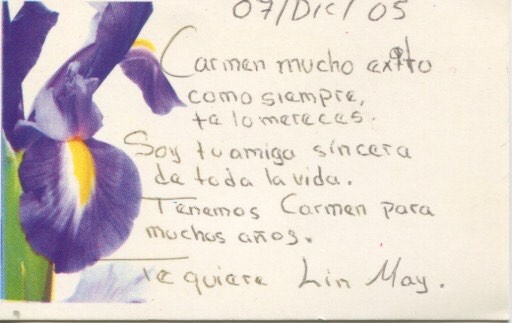 07/Dic/05
Carmen mucho exito
como siempre,
te lo mereces.
Soy tu amiga sincera
de toda la vida.
Tenemos Carmen para
muchos años.
Te quiere Lin May.